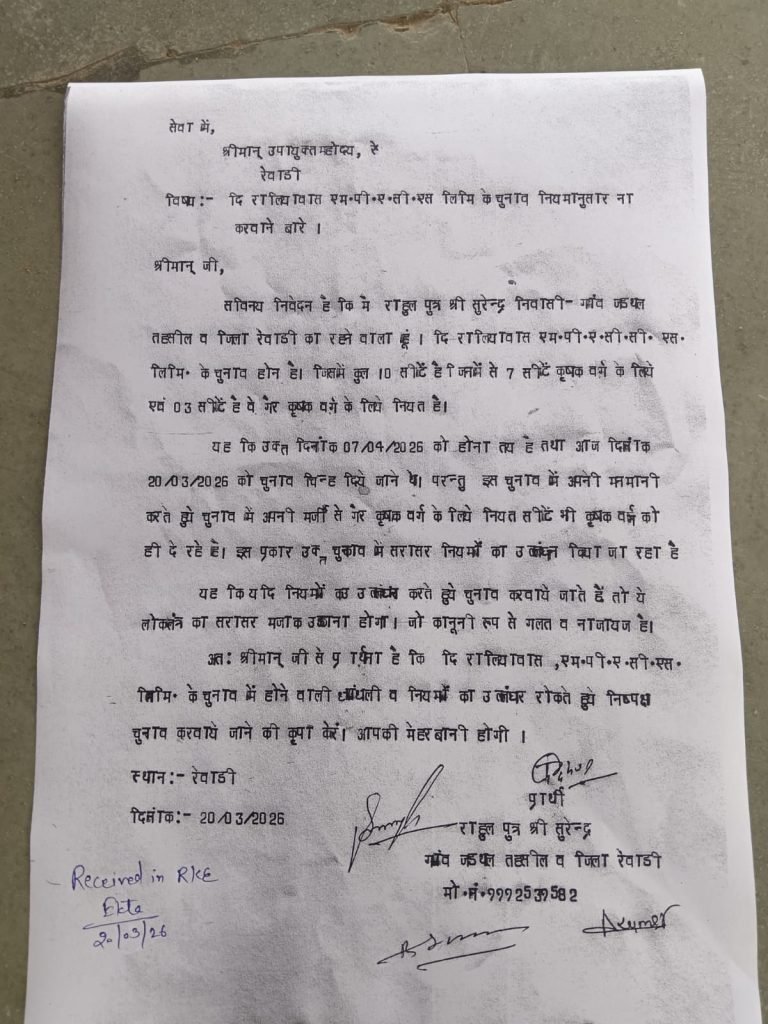 सेवा में,
श्रीमान् उपायुक्तमहोदय, रे
रेवाडी
विषय:- दि रालियावास एम.पी.ए.सी.एस लिमि के चुनाव नियमानुसार ना
करवाने बारे ।
श्रीमान् जी,
सविनय निवेदन है कि मे राहुल पुत्र श्री सुरेन्द्र निवासी- गांव जडथल
तहसील व जिला रेवाडी का रहने वाला हूं । दि रालियावास एम.पी.ए.सी.सी. एस.
लिमि. के चुनाव होन है। जिसमें कुल 10 सीटें है जिनमें से 7 सीटें कृषक वर्ग के लिये
एवं 03 सीटें है वे गैर कृषक वर्ग के लिये नियत है।
यह कि उक्त दिनांक 07/04/2026 को होना तय है तथा आज दिनांक
20/03/2026 को चुनाव चिन्ह दिये जाने थे। परन्तु इस चुनाव में अपनी मनमानी
करते हुये चुनाव में अपनी मर्जी से गैर कृषक वर्ग के लिये नियत सीटें भी कृषक वर्ग को
ही दे रहे है। इस प्रकार उक्त चुनाव में सरासर नियमों का उलंघन किया जा रहा है
यह कि यदि नियमों का उलंघन करते हुये चुनाव करवाये जाते हैं तो ये
लोकतंत्र का सरासर मजाक उडाना होगा। जो कानूनी रूप से गलत व नाजायज है।
अत: श्रीमान् जी से प्रार्थना है कि दि रालियावास ,एम.पी.ए.सी.एस.
लिमि. के चुनाव में होने वाली धांधली व नियमों का उलंघन रोकते हुये निष्पक्ष
चुनाव करवाये जाने की कृपा करें। आपकी मेहरबानी होगी ।
स्थान:- रेवाडी
प्रार्थी
दिनांक:- 20/03/2026
राहुल पुत्र श्री सुरेन्द्र
गांव जडथल तहसील व जिला रेवाडी
मो.नं.9992539582
Received in RKE
Ekta
20/03/26